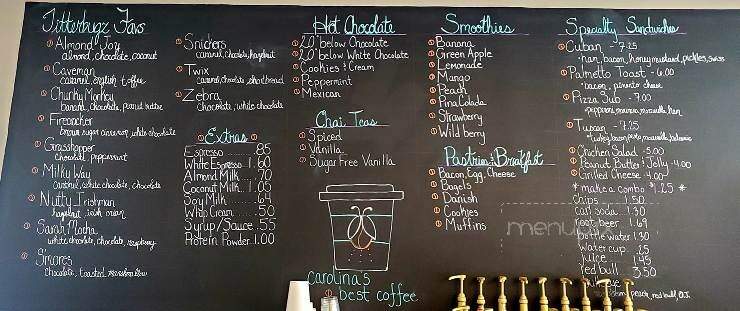 Jitterbugz Favs
Almond Joy
almond, chocolate, coconut
Caveman
caramel, english toffee
Chunky Monkey
banana, chocolate, peanut butter
Firecracker
brown sugar cinnamon, white chocolate
Grasshopper
chocolate, peppermint
Milky Way
caramel, white chocolate, chocolate
Nutty Irishman
hazelnut, irish cream
Sarah Mocha
white chocolate, chocolate, raspberry
S'mores
chocolate, toasted marshmallow
Snickers
caramel, chocolate, hazelnut
Twix
caramel, chocolate, shortbread
Zebra
chocolate, white chocolate
Extras
Espresso .85
White Espresso 1.60
Almond Milk .70
Coconut Milk 1.05
Soy Milk .64
Whip Cream .50
Syrup/Sauce .55
Protein Powder 1.00
Hot Chocolate
20° below Chocolate
20° below White Chocolate
Cookies & Cream
Peppermint
Mexican
Chai Teas
Spiced
Vanilla
Sugar Free Vanilla
Carolina's
best coffee
Smoothies
Banana
Green Apple
Lemonade
Mango
Peach
Pina Colada
Strawberry
Wild berry
Pastries & Breakfast
Bacon, Egg, Cheese
Bagels
Danish
Cookies
Muffins
Specialty Sandwiches
Cuban - 7.25
ham, bacon, honey mustard, pickles, swiss
Palmetto Toast - 6.00
bacon, pimento cheese
Pizza Sub - 7.00
pepperoni, marinara, mozzarella, ham
Tuscan - 7.25
turkey, bacon, pesto, mozzarella, balsamic
Chicken Salad - 5.00
Peanut Butter & Jelly - 4.00
Grilled Cheese - 4.00
* make a combo $1.25 *
Chips 1.50
can soda 1.30
root beer 1.69
bottle water 1.30
water cup .25
juice 1.45
red bull 3.50
peach, red bull, O.J.